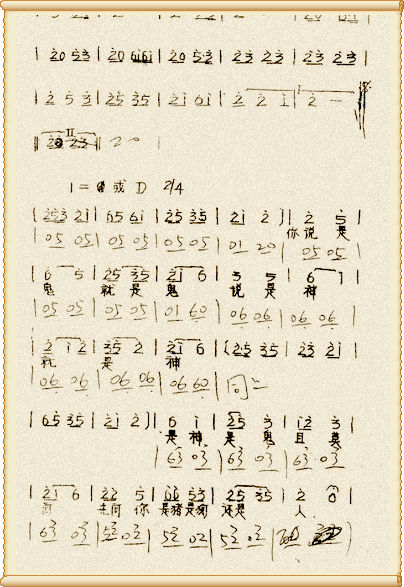 | 20 53 | 20 6i6i | 20 53 | 23 23 | 23 23 |
| 2 5 3 | 25 35 | 2i 6i | 2 2 i | 2 — ‖
‖ 20 23 ‖ 2 0 |
或 D 2/4
| 253 2i | 65 6i | 25 35 | 2i 2 ) | 2 5
你说 是
| 05 05 | 05 05 | 05 05 | 01 20 | 05 05
| 6 5 | 25 35 | 2i 6 | 3 5 | 6 i
鬼 就 是 鬼 说 是 神
| 05 05 | 05 05 | 01 60 | 06 06 | 06 06
| 2 i 2 | 35 2 | 2i 6 | (25 35 | 23 2i |
就 是 神
| 06 06 | 06 06 | 06 60 |
| 65 35 | 2i 2 ) | 6 i | 25 3 | i2 3
是 神 是 鬼 且 莫
| 63 03 | 63 03 | 63 03
| 2i 6 | 22 5 | 66 53 | 25 35 | 2
问 你 是猪是狗 还是 人
| 63 03 | 52 02 | 52 02 | 52 02 |